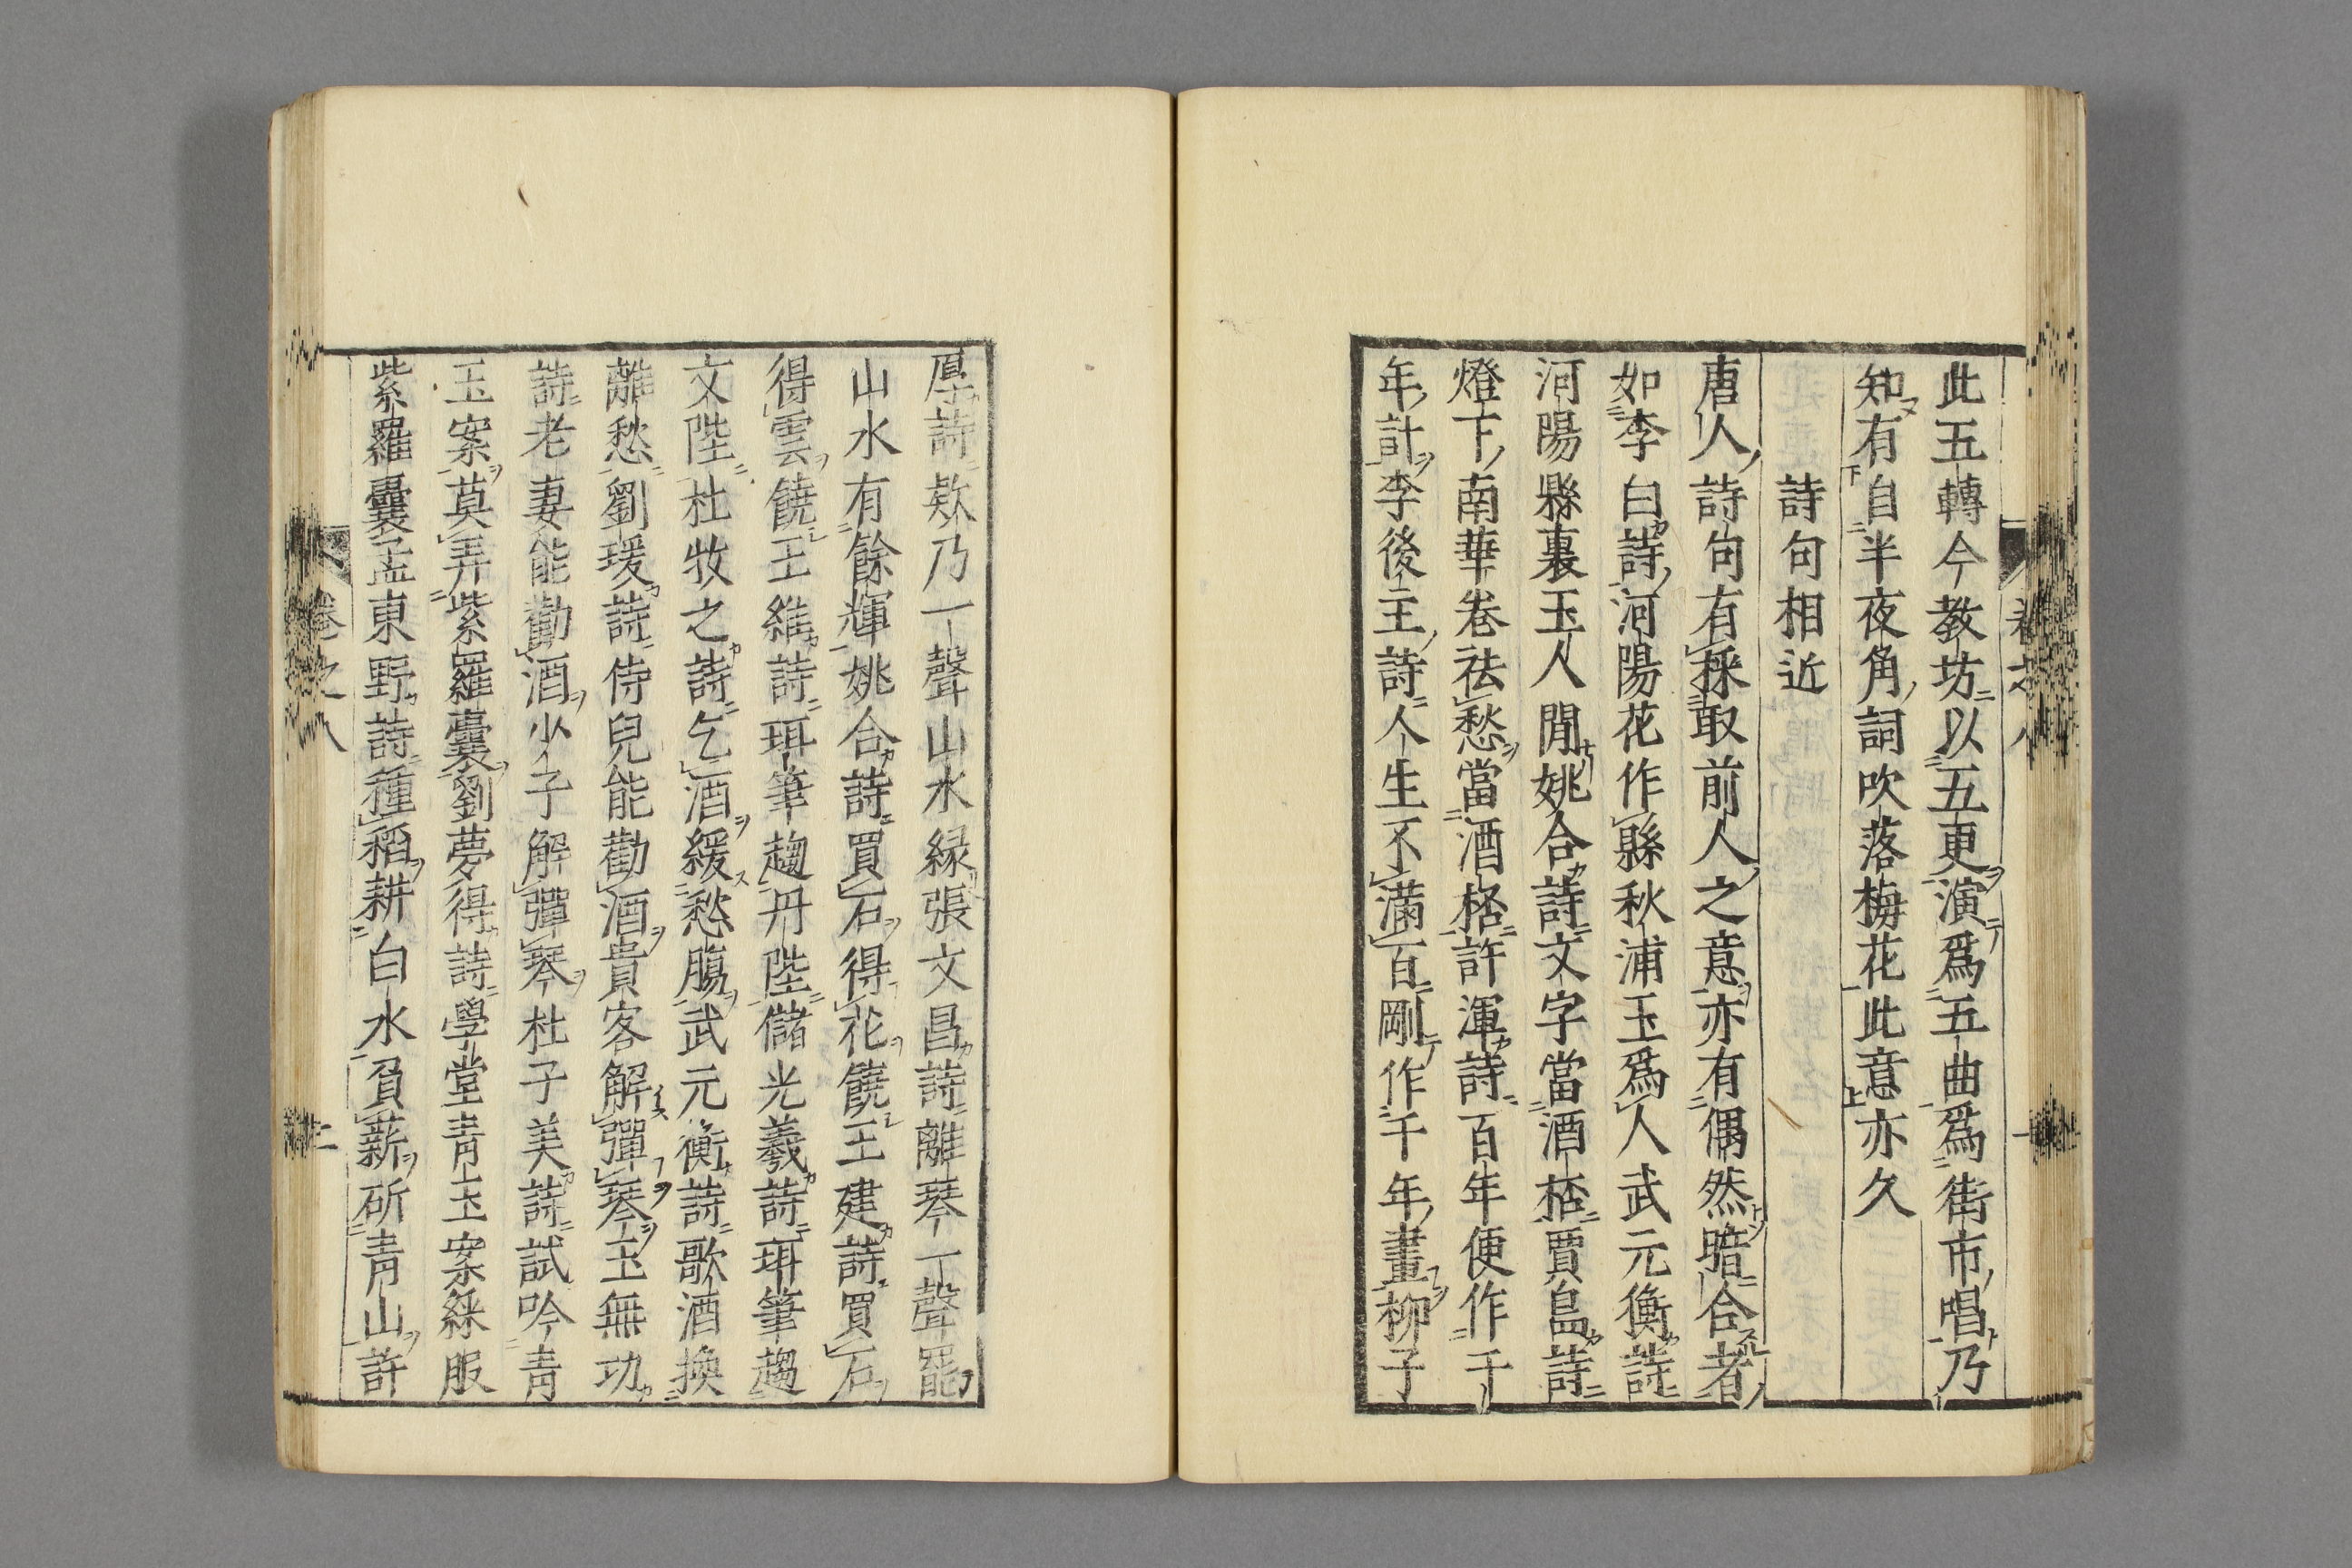 此五轉今教坊以五更演爲五曲爲街市唱乃
知有自半夜角詞吹落梅花此意亦久
詩句相近
唐人詩句有採取前人之意亦有偶然暗合者
如李白詩河陽花作縣秋浦玉爲人武元衡詩
河陽縣裏玉人閒姚合詩文字當酒桮賈島詩
燈下南華卷祛愁當酒桮許渾詩百年便作千
年計李後主詩人生不滿百剛作千年畫柳子
厚詩欸乃一聲山水緑張文昌詩離琴一聲罷
山水有餘輝姚合詩買石得花饒王建詩買石
得雲饒王維詩珥筆趨丹陛儲光羲詩珥筆趨
文陛杜牧之詩乞酒緩愁腸武元衡詩歌酒換
離愁劉瑗詩侍兒能勸酒貴客解彈琴王無功
詩老妻能勸酒少子解彈琴杜子美詩試吟青
玉案莫弄紫羅囊劉夢得詩學堂青玉案綵服
紫羅囊孟東野詩種稻耕白水負薪斫青山許
卷之八